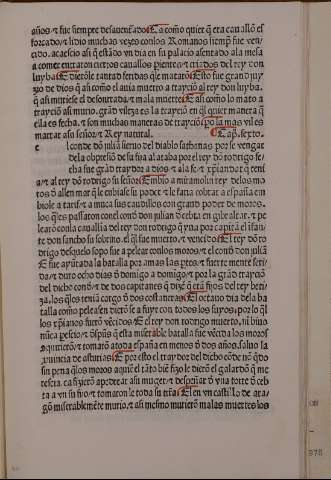 años. ⁊ fue siempre desauenturado. E a como quier q̃ era cauallõ es
forçado, ⁊ lidio muchas vezes conlos Romanos siempre fue ven
cido. acaescio asi q̃ estãdo vn dia en su palacio asentado ala mesa
a comer entraron ciertos caualleros ⁊ criados del rey don
luyba E dierõle tantas feridas que lo mataron E esto fue grand juy
zio de dios q̃ asi como el auia muerto a trayciõ al rey don luyba.
q̃ asi muriese el desonrrada ⁊ mala muerte E asi como lo mato a
trayciõ asi murio. grãd vileza es la trayciõ en q̃l quier manera q̃
ella es fecha. ⁊ son muchas maneras de trayciõ ⁊ la mas vil es
matar asi señor ⁊ Rey natural. ¶ Cap̃. sexto.
e l conde dõ juliã sieruo del diablo sathanas por se vengar
dela a su fija al caba por el rey dõ rodrigo fe
cha fue grãd traydor a dios ⁊ ala fe ⁊ xp̃iandad q̃ tení
a ⁊ al rey dõ rodrigo su señor E enbio a miramolin rey delos mo
ros d allen mar que le enbiase su poder ⁊ le faria cobrar a españa en
biole a tarif ⁊ a muça sus caudillos con grand poder de moros.
los q̃les passaron con el conde don julian d cebta en gibraltar. ⁊ pe
learõ conla cauallia del rey don rodrigo q̃ yua por capitã el ifan
te don sancho su sobrino. el q̃l fue muerto ⁊ vencido E el rey dõ ro
drigo desque lo sopo fue a pelear conlos moros ⁊ el conde don juliã
E fue ayuntada la batalla por amas las ptes ⁊ fuertemente feri
da ⁊ duro ocho dias d domigo a domigo ⁊ por la grãd trayciõ
del dicho conde ⁊ de dos capitanes q̃ dizẽ q̃ erã fijos del rey beti
za, los q̃les tenia cargo d dos costaneras E el octauo dia dela ba
talla como peleasen dierõ se a fuyr con todos los suyos. por lo q̃l
los xp̃ianos fuerõ vẽcidos E el rey don rodrigo muerto, ni biuo
nũca pescio ⁊ dspues q̃sta miserable batalla fue vẽcida los moros
⁊ tomarõ a toda españa en menos d dos años. saluo la
puincia de asturias E por esto el traydor del dicho cõde nõ q̃do
sin pena q̃los moros aquiẽ el tãto biẽ fizo le dierõ el galardõ q̃ me
rescia. ca fizierõ apedrear asi muger ⁊ despeñar d vna torre d ceb
ta a vn su fijo ⁊ tomaron le toda su tierra E el en vn castillo de ara
gõ miserablemẽte murio. ⁊ asi mesmo murierõ malas muertes los